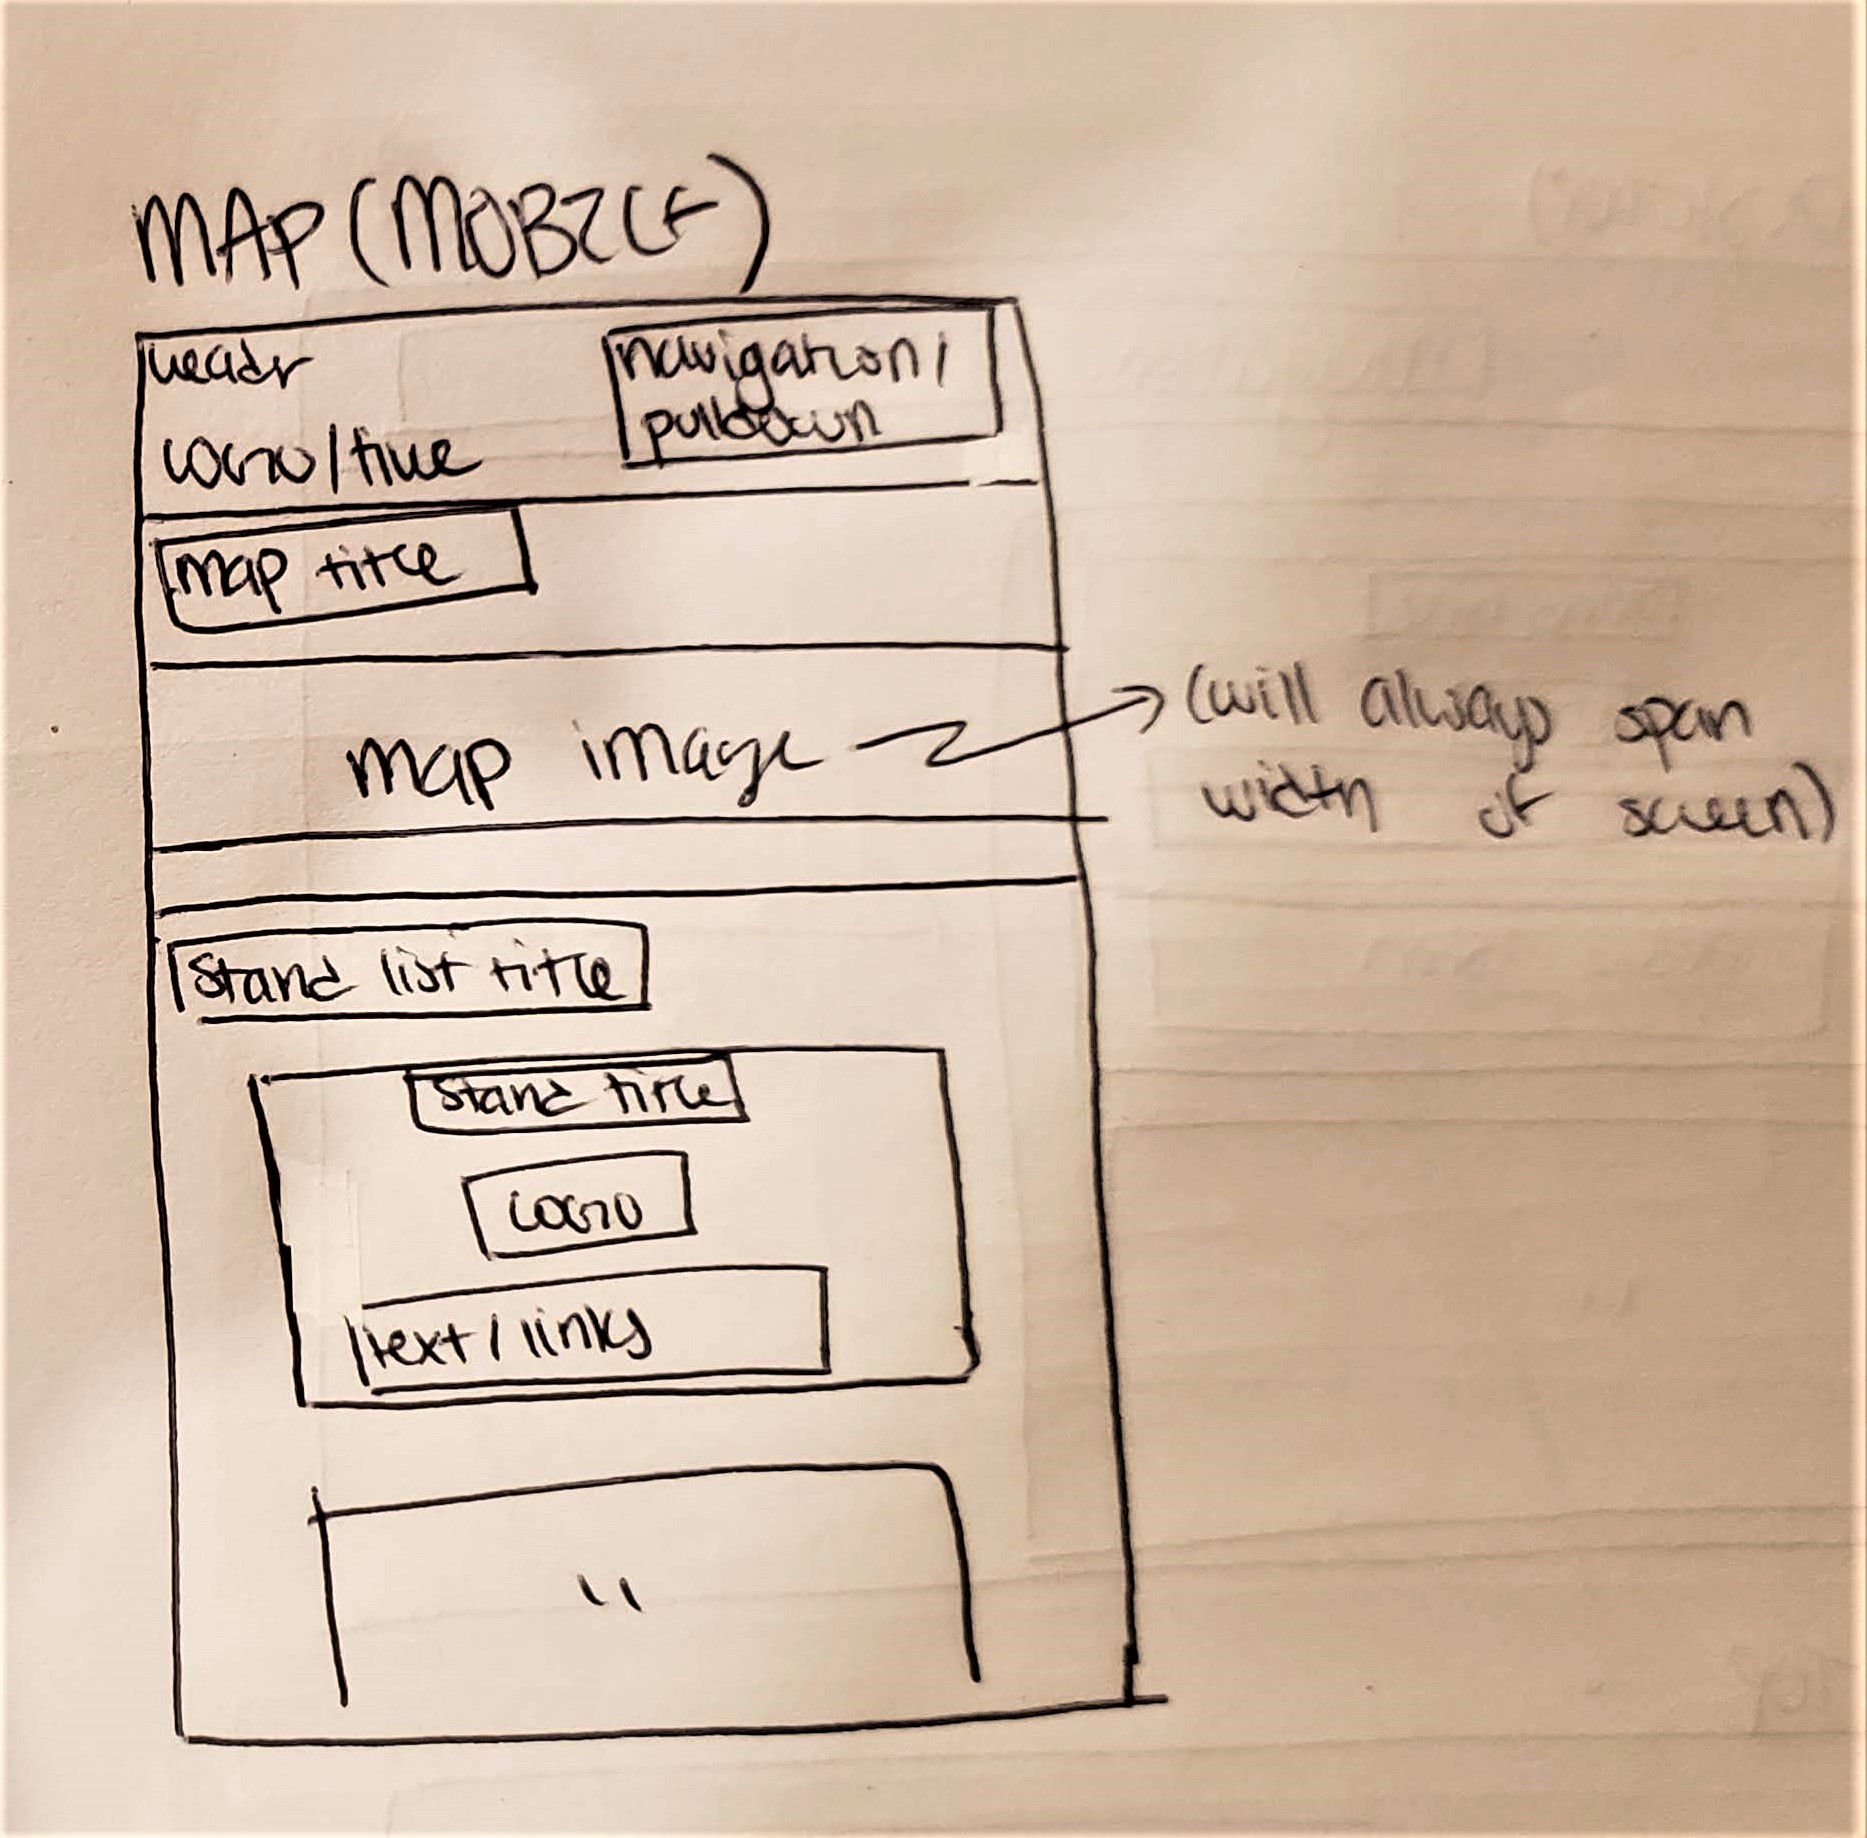 MAP (MOBILE)
header
navigation/
pulldown
LOGO/title
map title
map image
(will always span
width of screen)
stand list title
stand title
LOGO
text/links
"